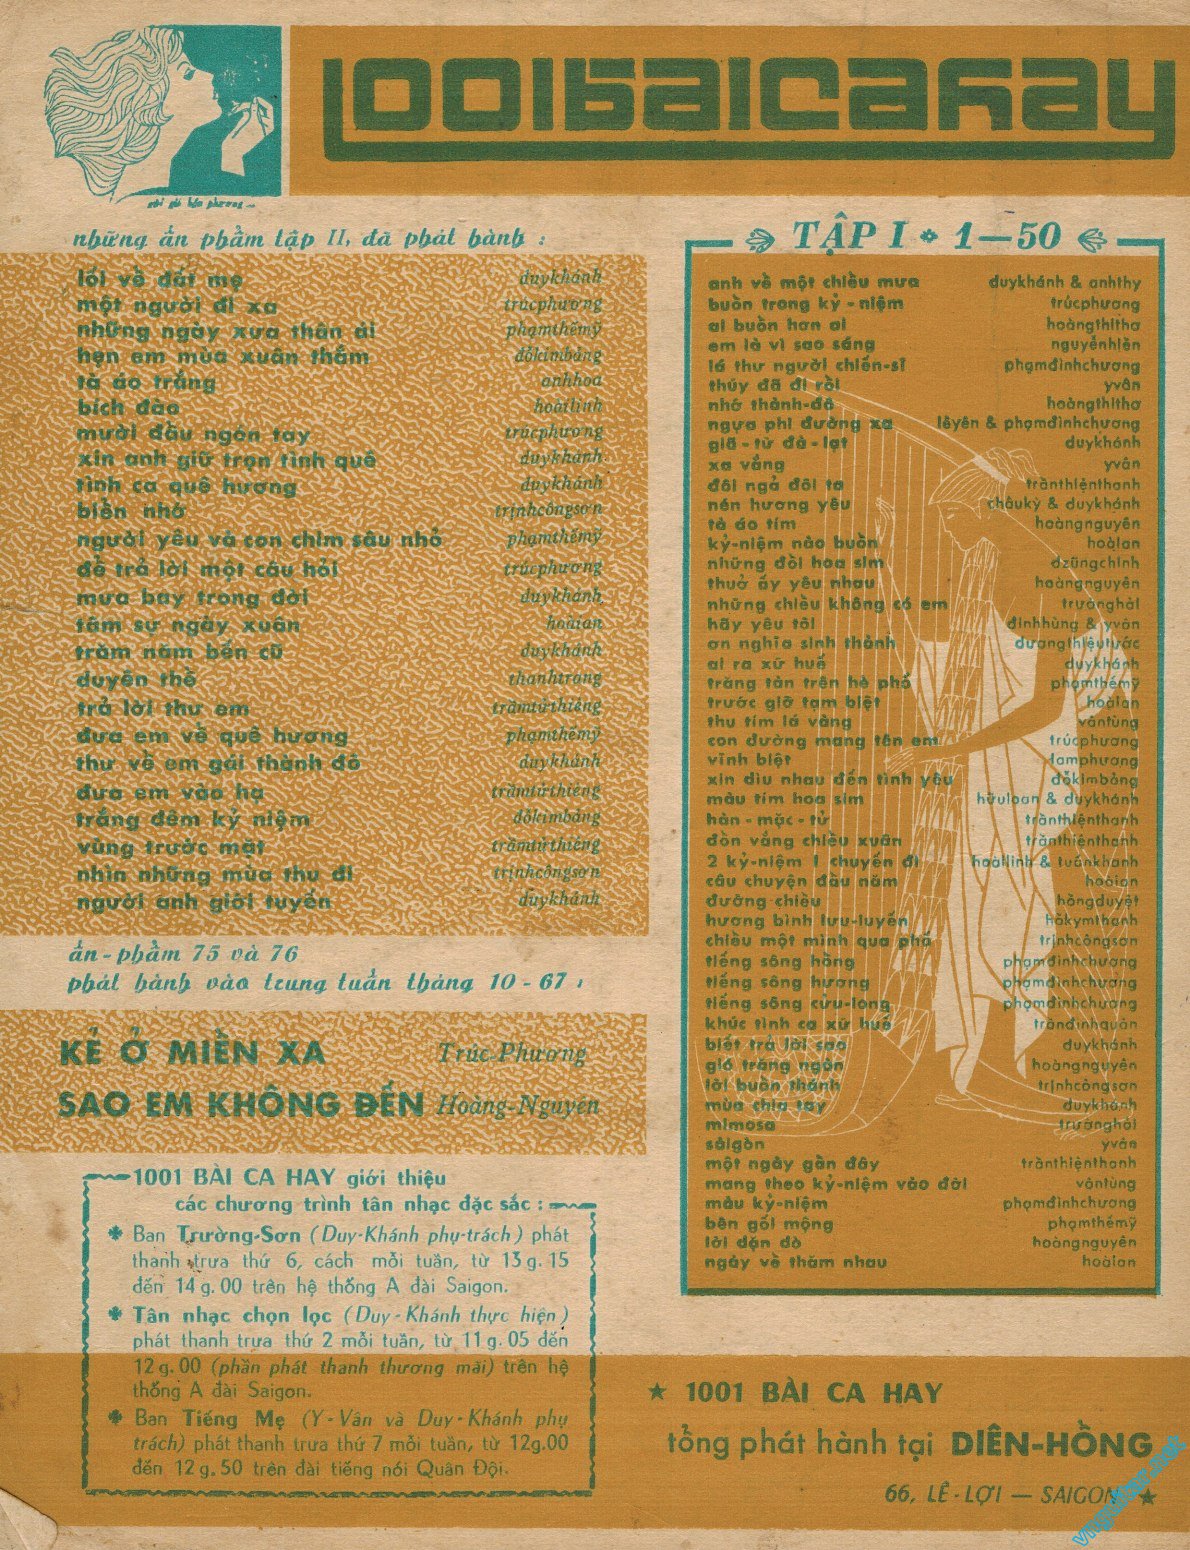 1001 bài ca hay
gửi gió ngàn phương
những ấn phẩm tập II, đã phát hành :
lối về đất mẹ duykhánh
một người đi xa trúcphương
những ngày xưa thân ái phạmthếmỹ
hẹn em mùa xuân thắm đỗkimbảng
tà áo trắng anhhoa
bích đào hoàilinh
mười đầu ngón tay trúcphương
xin anh giữ trọn tình quê duykhánh
tình ca quê hương duykhánh
biển nhớ trịnhcôngsơn
người yêu và con chim sâu nhỏ phạmthếmỹ
để trả lời một câu hỏi trúcphương
mưa bay trong đời duykhánh
tâm sự ngày xuân hoàian
trăm năm bến cũ duykhánh
duyên thề thanhtrang
trả lời thư em trầmtửthiêng
đưa em về quê hương phạmthếmỹ
thư về em gái thành đô duykhánh
đưa em vào hạ trầmtửthiêng
trắng đêm kỷ niệm đỗkimbảng
vùng trước mặt trầmtửthiêng
nhìn những mùa thu đi trịnhcôngsơn
người anh giới tuyến duykhánh
ấn-phẩm 75 và 76
phát hành vào trung tuần tháng 10 - 67 :
KẺ Ở MIỀN XA Trúc-Phương
SAO EM KHÔNG ĐẾN Hoàng-Nguyên
1001 BÀI CA HAY giới thiệu
các chương trình tân nhạc đặc sắc :
Ban Trường-Sơn (Duy-Khánh phụ-trách) phát
thanh trưa thứ 6, cách mỗi tuần, từ 13 g. 15
đến 14 g. 00 trên hệ thống A đài Saigon.
Tân nhạc chọn lọc (Duy-Khánh thực hiện)
phát thanh trưa thứ 2 mỗi tuần, từ 11 g. 05 đến
12 g. 00 (phần phát thanh thương mãi) trên hệ
thống A đài Saigon.
Ban Tiếng Mẹ (Y-Vân và Duy-Khánh phụ
trách) phát thanh trưa thứ 7 mỗi tuần, từ 12g.00
đến 12 g. 50 trên đài tiếng nói Quân Đội.
TẬP I 1—50
anh về một chiều mưa duykhánh & anhthy
buồn trong kỷ-niệm trúcphương
ai buồn hơn ai hoàngthithơ
em là vì sao sáng nguyễnhiền
lá thư người chiến-sĩ phạmđìnhchương
thúy đã đi rồi yvân
nhớ thành-đô hoàngthithơ
ngựa phi đường xa lêyên & phạmđìnhchương
giã-từ đà-lạt duykhánh
xa vắng yvân
đôi ngả đôi ta trầnthiệnthanh
nén hương yêu châukỳ & duykhánh
tà áo tím hoàngnguyên
kỷ-niệm nào buồn hoàian
những đồi hoa sim dzũngchinh
thuở ấy yêu nhau hoàngnguyên
những chiều không có em trườnghải
hãy yêu tôi đinhhùng & yvân
ơn nghĩa sinh thành dươngthiệutước
ai ra xứ huế duykhánh
trăng tàn trên hè phố phạmthếmỹ
trước giờ tạm biệt hoàian
thu tím lá vàng văntùng
con đường mang tên em trúcphương
vĩnh biệt lamphương
xin dìu nhau đến tình yêu đỗkimbảng
màu tím hoa sim hữuloan & duykhánh
hàn-mặc-tử trầnthiệnthanh
đồn vắng chiều xuân trầnthiệnthanh
2 kỷ-niệm 1 chuyến đi hoàilinh & tuấnkhanh
câu chuyện đầu năm hoàian
đường chiều hồngduyệt
hương bình lưu-luyến hồkymthanh
chiều một mình qua phố trịnhcôngsơn
tiếng sông hồng phạmđìnhchương
tiếng sông hương phạmđìnhchương
tiếng sông cửu-long phạmđìnhchương
khúc tình ca xứ huế trầnđìnhquân
biết trả lời sao duykhánh
gió trăng ngàn hoàngnguyên
lời buồn thánh trịnhcôngsơn
mùa chia tay duykhánh
mimosa trườnghải
sàigòn yvân
một ngày gần đây trầnthiệnthanh
mang theo kỷ-niệm vào đời văntùng
màu kỷ-niệm phạmđìnhchương
bên gối mộng phạmthếmỹ
lời dặn dò hoàngnguyên
ngày về thăm nhau hoàian
★ 1001 BÀI CA HAY
tổng phát hành tại DIÊN-HỒNG
66, LÊ-LỢI — SAIGON ★